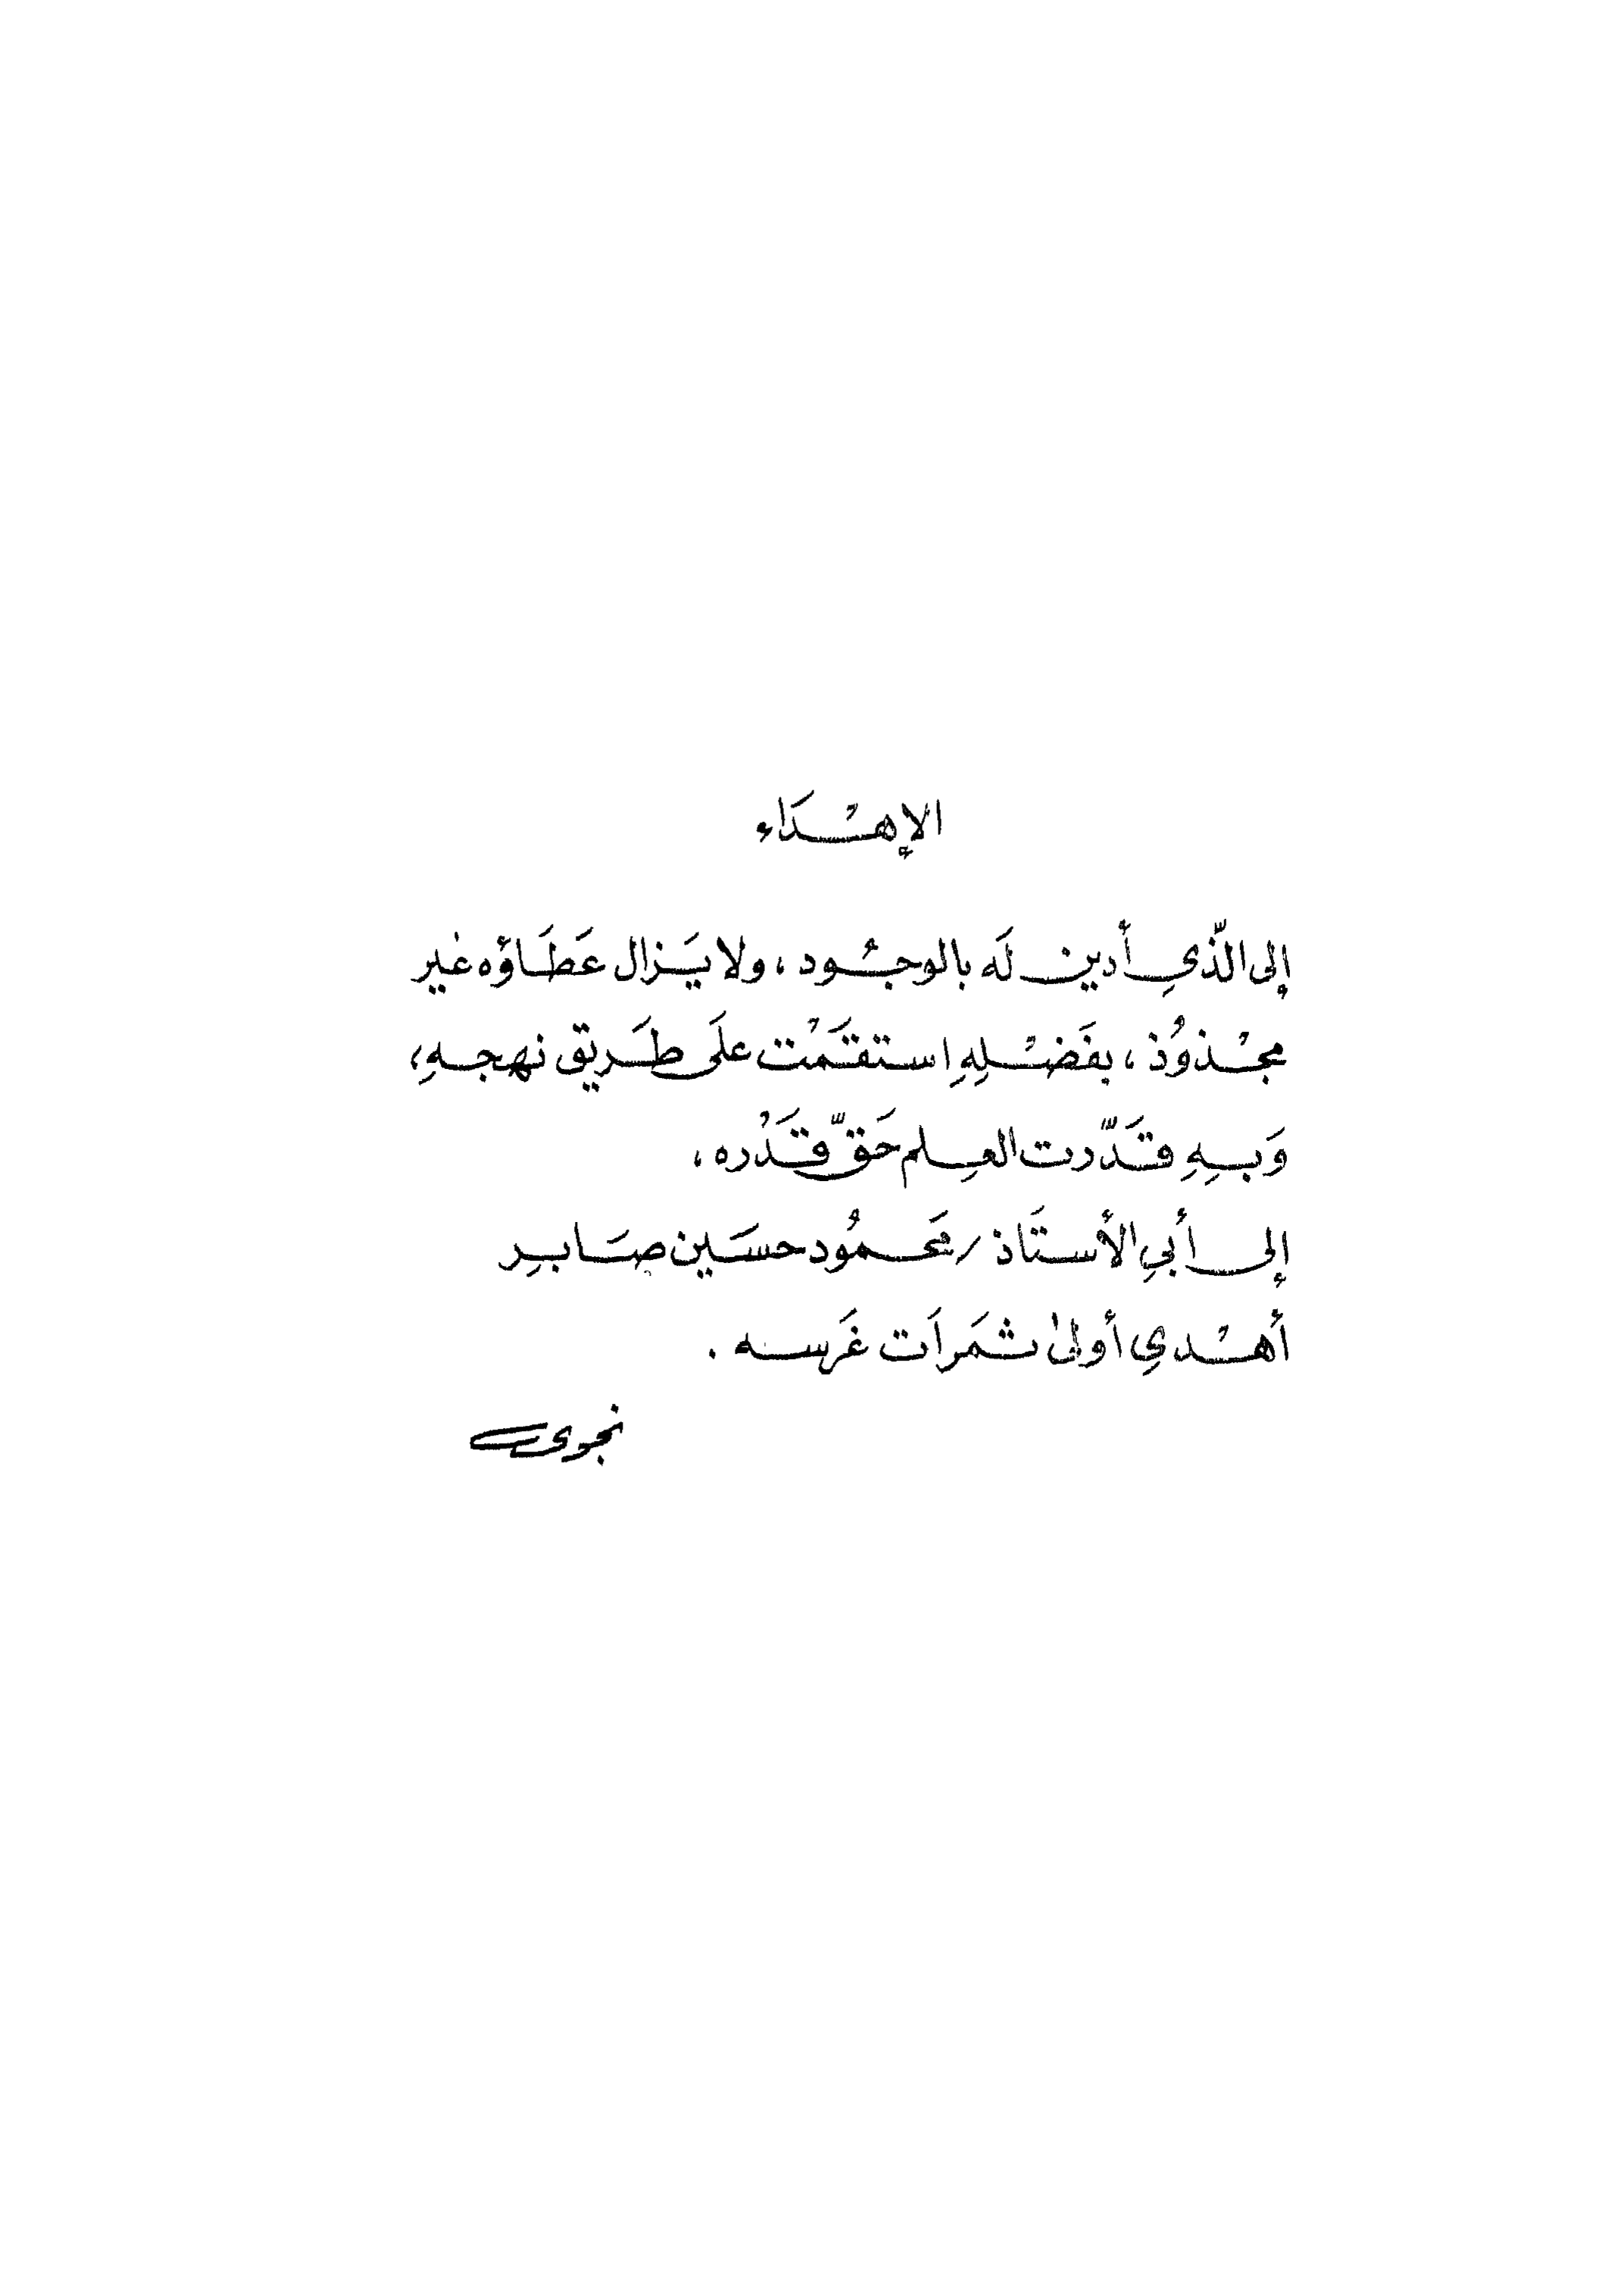 الإهْدَاء
إلى الّذي أدين لَه بالوجُود ، ولا يَزال عَطَاؤه غير
مجْذوُذ ، بفَضْلِهِ استقَمْت علَى طَريق نهجهِ ،
وَبهِ قدَّرت العِلم حَقّ قَدْره ،
إلى أبي الأستَاذ / محَمُود حسَين صَابِر
أهْدي أولىٰ ثمَراَت غَرسه .
نجوى